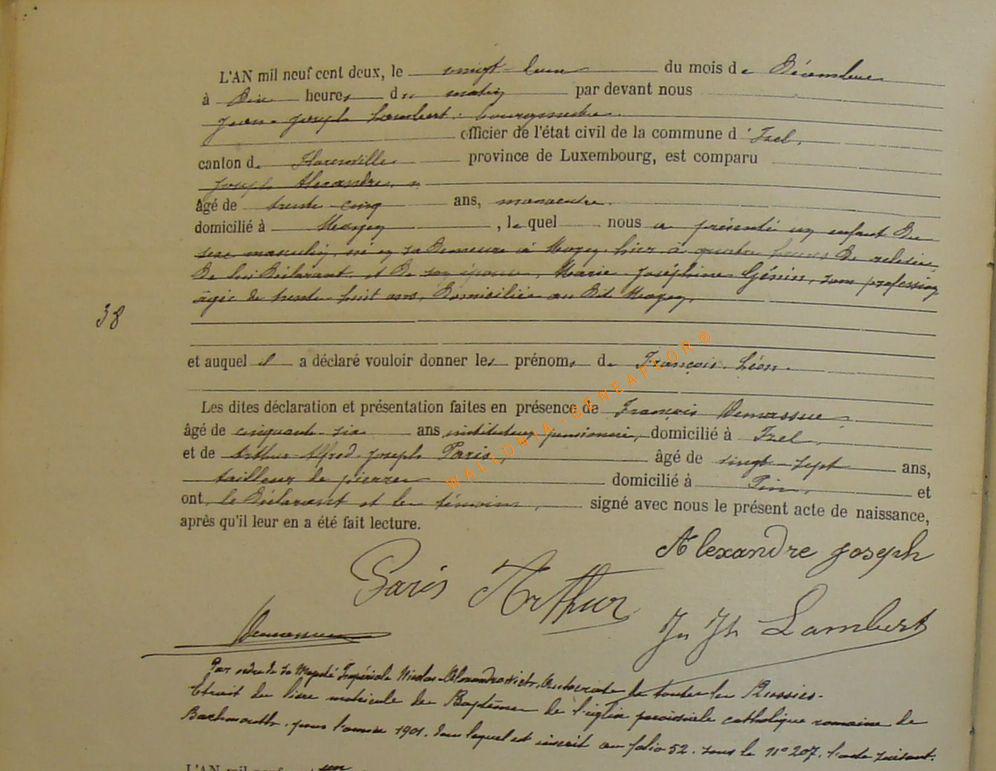 L'AN mil neuf cent deux, le vingt deux du mois de Décembre
à Dix heures du matin par devant nous
Jean-Joseph Lambert, bourgmestre
officier de l'état civil de la commune d'Izel,
canton de Florenville province de Luxembourg, est comparu
Joseph Alexandre,
âgé de trente-cinq ans, manoeuvre,
domicilié à Moyen, lequel nous a présenté un enfant du
sexe masculin, né en sa demeure à Moyen, hier à quatre heures de relevée
de lui Déclarant et de son épouse, Marie-Joséphine Génin, sans profession
âgée de trente-huit ans, Domiciliée au dit Moyen,
38
et auquel il a déclaré vouloir donner les prénoms de François-Léon.
Les dites déclaration et présentation faites en présence de François Demassue
âgé de cinquante-six ans instituteur pensionné, domicilié à Izel,
et de Arthur-Alfred-Joseph Paris, âgé de vingt-sept ans,
tailleur de pierres domicilié à Pin, et
ont, le Déclarant et les témoins, signé avec nous le présent acte de naissance,
après qu'il leur en a été fait lecture.
WALLONIA-GENEAFLOR®
Alexandre Joseph
Paris Arthur
Jn Jh Lambert
Par ordre de Sa Majesté Impériale Nicolas Alexandrovitch, Autocrate de toutes les Russies.
Extrait du livre matricule des Baptêmes de l'église paroissiale catholique romaine de
Bachmouth, pour l'année 1901, dans lequel est inscrit au folio 52, sous le n° 207, l'acte suivant.
L'AN mil neuf cent un